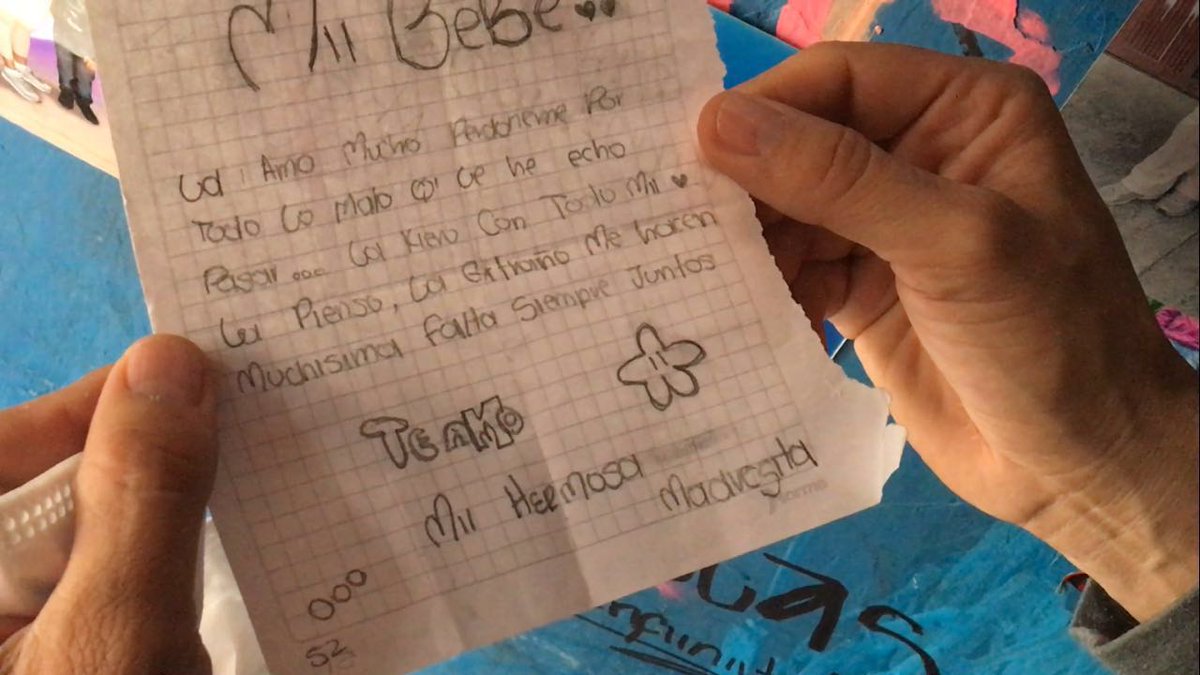 Mii BeBe
La Amo Mucho Perdoneme Por
Todo Lo Malo Q' Le he echo
Pasar... La Kiero Con Todo Mii ♥
La Pienso, La Extraño Me hacen
Muchisima falta Siempre Juntos
TeAMo
Mii Hermosa
Madresita
Norma
52
infiinit